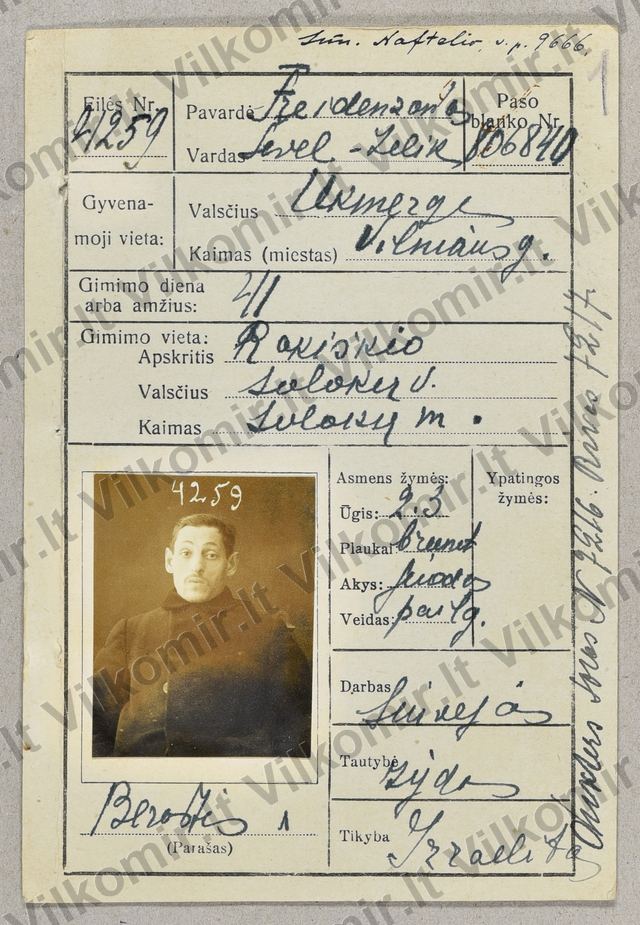 Sūn. Naftelio, v. p. 9666.
1
Eilės Nr.
4259
Pavardė Freidenzonas
Vardas Sevel-Zelik
Paso blanko Nr.
806840
Gyvena-
moji vieta:
Valsčius Ukmergė
Kaimas (miestas) Vilniaus g.
Gimimo diena
arba amžius: 41
Gimimo vieta:
Apskritis Rokiškio
Valsčius Solokų v.
Kaimas Solokų m.
4259
Asmens žymės:
Ūgis: 2.3
Plaukai brunet
Akys: juodos
Veidas: pailg.
Ypatingos
žymės:
Darbas
Tautybė žydas
Tikyba Izraelitas
Beraštis
(Parašas)
N 7216. 7217.
Vilkomir.lt